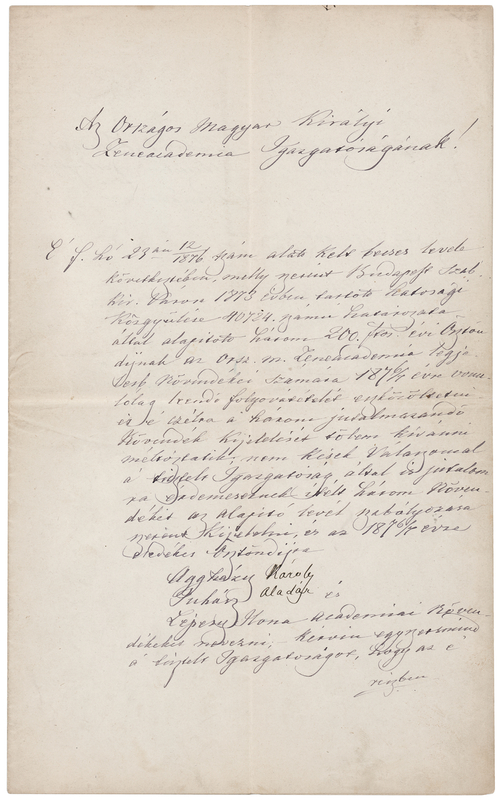 Az Országos Magyar Királyi
Zeneacademia Igazgatóságának!
É f. hó 23án 12/1876 szám alatt kelt becses levele
következtében, melly szerint Budapest Szab.
kir. Város 1873 évben tartott hatosági
Közgyűlése 40724. számu határozata
által alapított három 200 for. évi Ösztön
díjnak az Orsz. m. Zeneacademia legjo
növendékei számára 1876/7 évre
leendő folyóvátételét
és é czélra a három jutalmazandó
növendék kijelelését tőlem kívánni
méltóztatik nem kések Válaszomal
a tisztelt Igazgatóság által is jutalom
ra érdemesnek ítélt három növen
dékét az alapító levél szabályozása
szerént kijelelni, és az 1876/7 évre
Ösztöndíjra
Aggházy Károly
Juhász Aladár és
Lépesy Ilona Academiai Növen
dékeket nevezni, kérvén egyszersmind
a tisztelt Igazgatóságot, hogy az e
részben